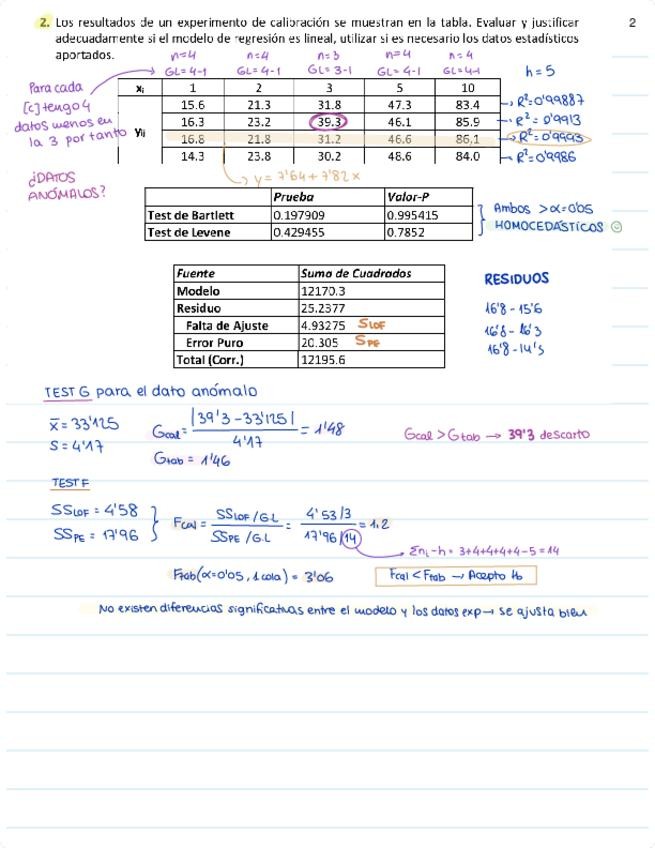 2. Los resultados de un experimento de calibración se muestran en la tabla. Evaluar y justificar 2
adecuadamente si el modelo de regresión es lineal, utilizar si es necesario los datos estadísticos
aportados.
n=4 n=4 n=3 n=4 n=4
GL=4-1 GL=4-1 GL=3-1 GL=4-1 GL=4-1 h=5
Para cada
[c] tengo 4
datos menos en
la 3 por tanto
xᵢ 1 2 3 5 10
yᵢⱼ
15.6 21.3 31.8 47.3 83.4 → R²=0'99887
16.3 23.2 39.3 46.1 85.9 → R²=0'9913
16.8 21.8 31.2 46.6 86.1 → R²=0'9993
14.3 23.8 30.2 48.6 84.0 → R²=0'9986
¿DATOS
ANÓMALOS?
y=7'64+7'82x
Prueba Valor-P
Test de Bartlett 0.197909 0.995415
Test de Levene 0.429455 0.7852
Ambos >α=0'05
HOMOCEDÁSTICOS ☺
Fuente Suma de Cuadrados
Modelo 12170.3
Residuo 25.2377
Falta de Ajuste 4.93275 SLOF
Error Puro 20.305 SPE
Total (Corr.) 12195.6
RESIDUOS
16'8-15'6
16'8-16'3
16'8-14'3
TEST G para el dato anómalo
x̄=33'125
S=4'17
Gcal= |39'3-33'125| / 4'17 = 1'48
Gtab=1'46
Gcal>Gtab → 39'3 descarto
TEST F
SSLOF=4'58
SSPE=17'96
Fcal= SSLOF/GL / SSPE/GL = 4'53/3 / 17'96/14 = 1,2
Σnᵢ-h=3+4+4+4+4-5=14
Ftab(α=0'05, 1 cola)=3'06
Fcal<Ftab → Acepto H₀
No existen diferencias significativas entre el modelo y los datos exp → se ajusta bien